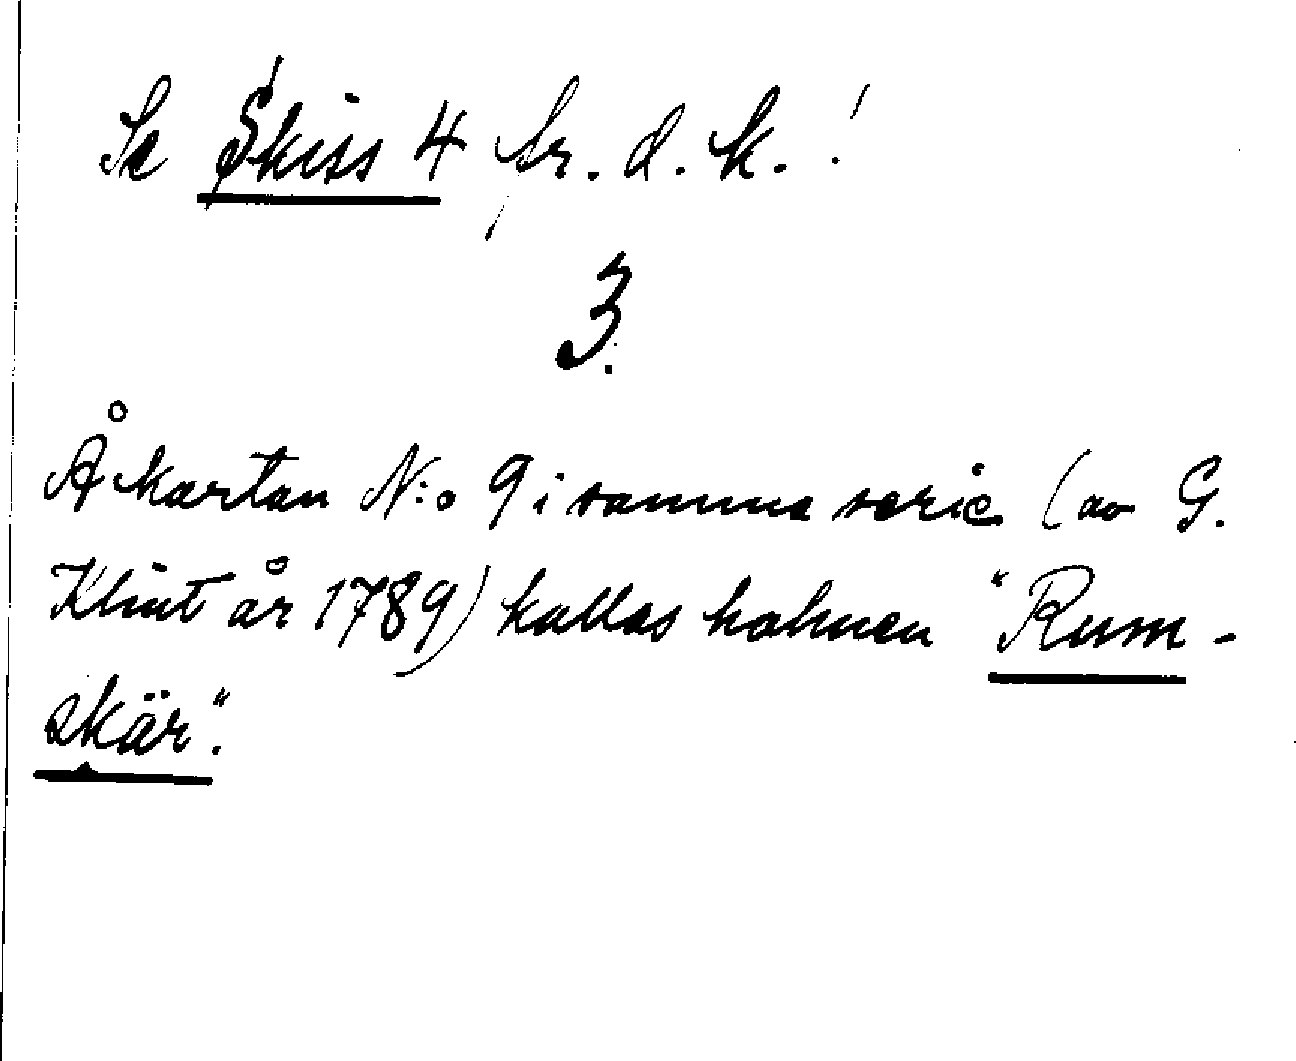 Se Skiss 4 fr. d. k.!
3.
Å kartan N:o 9 i samma serie (av G.
Klint år 1789) kallas holmen "Rum-
skär".